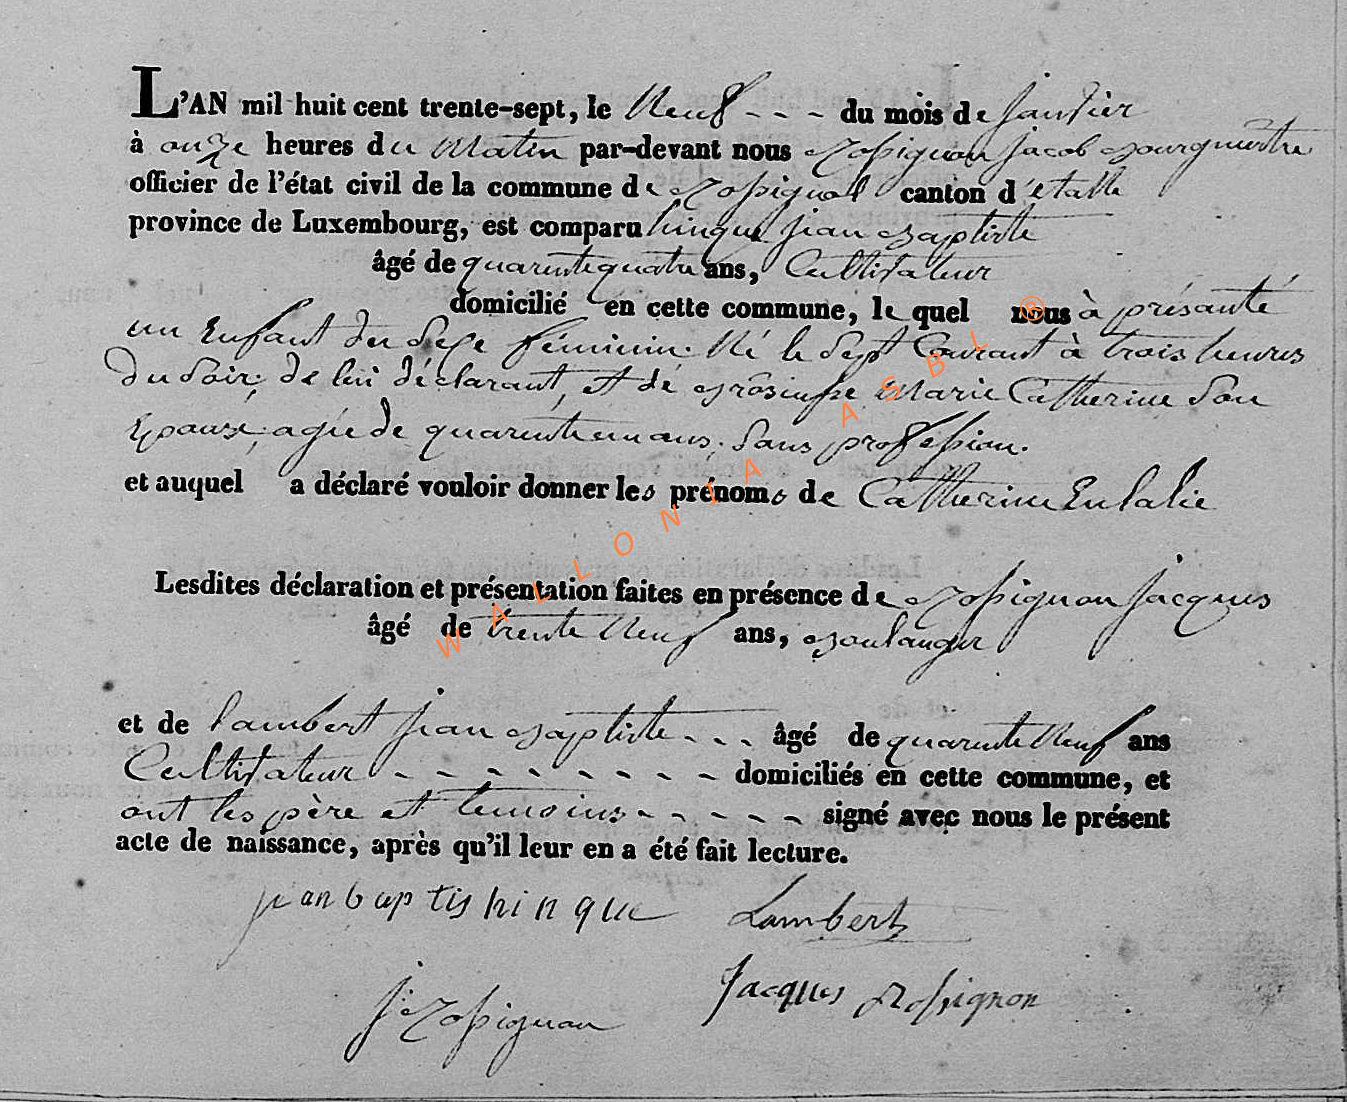 L'AN mil huit cent trente-sept, le Neuf - - - du mois de Janvier
à onze heures du Matin par-devant nous Rossignon Jacob Bourgmestre
officier de l'état civil de la commune de Rossignol canton d'etalle
province de Luxembourg, est comparu hinque jean Baptiste
âgé de quarentequatre ans, Cultivateur
domicilié en cette commune, le quel nous à présanté
un Enfant du Sexe féminin. Né le Sept Courant à trois heures
du Soir, de lui déclarant, et dé Marie Catherine Son
Epouse, agée de quarenteun ans, Sans profession.
et auquel a déclaré vouloir donner les prénoms de Catherine Eulalie
Lesdites déclaration et présentation faites en présence de Rossignon Jacques
âgé de trente Neuf ans, Boulanger
et de Lambert jean Baptiste - - - âgé de quarente Neuf ans
Cultivateur - - - - - - - - - domiciliés en cette commune, et
ont les père et temoins - - - - - signé avec nous le présent
acte de naissance, après qu'il leur en a été fait lecture.
jean baptis hinque Lambert
J. Rossignon Jacques Rossignon
WALLONIA ASBL ®